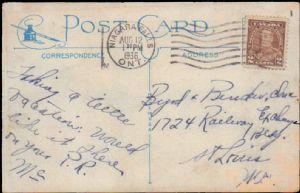 POST CARD
CORRESPONDENCE
ADDRESS
NIAGARA FALLS
AUG 12
1 PM
1936
ONT.
2
Taking a little
vacation. Would
like it here
on your R.R.
Mc
1724 Railway Exchange
Bldg.
St Louis